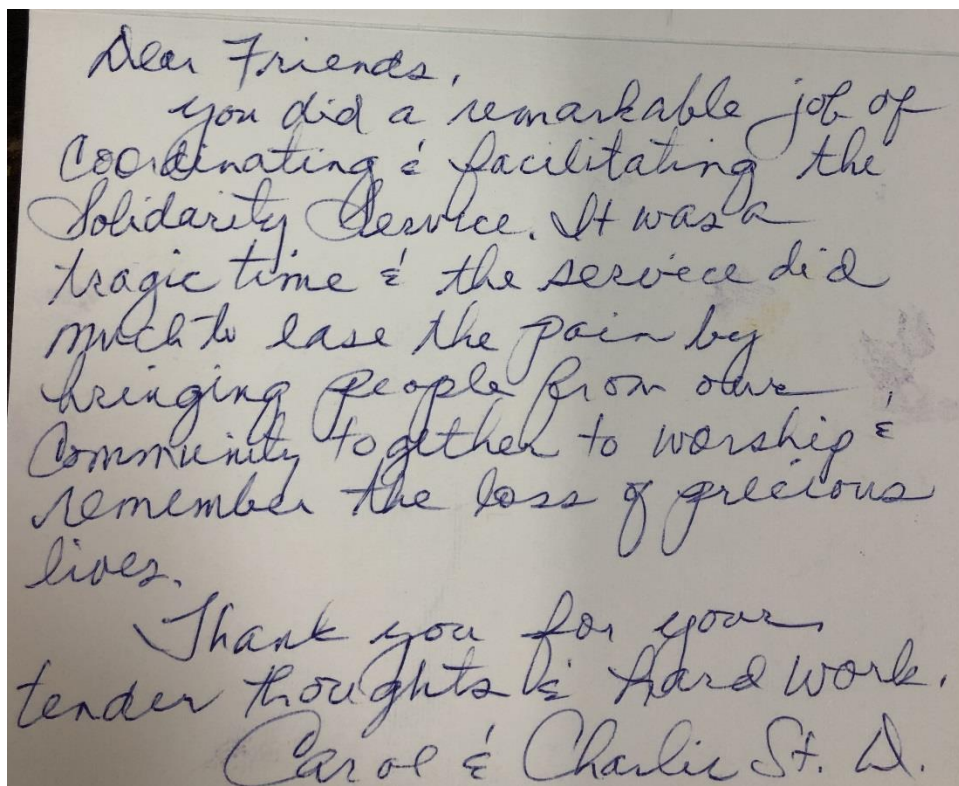 Dear Friends,
you did a remarkable job of
Coordinating & facilitating the
Solidarity Service. It was a
tragic time & the service did
much to ease the pain by
bringing people from our
Community together to worship &
remember the loss of precious
lives.
Thank you for your
tender thoughts & hard work.
Carol & Charlie St. D.